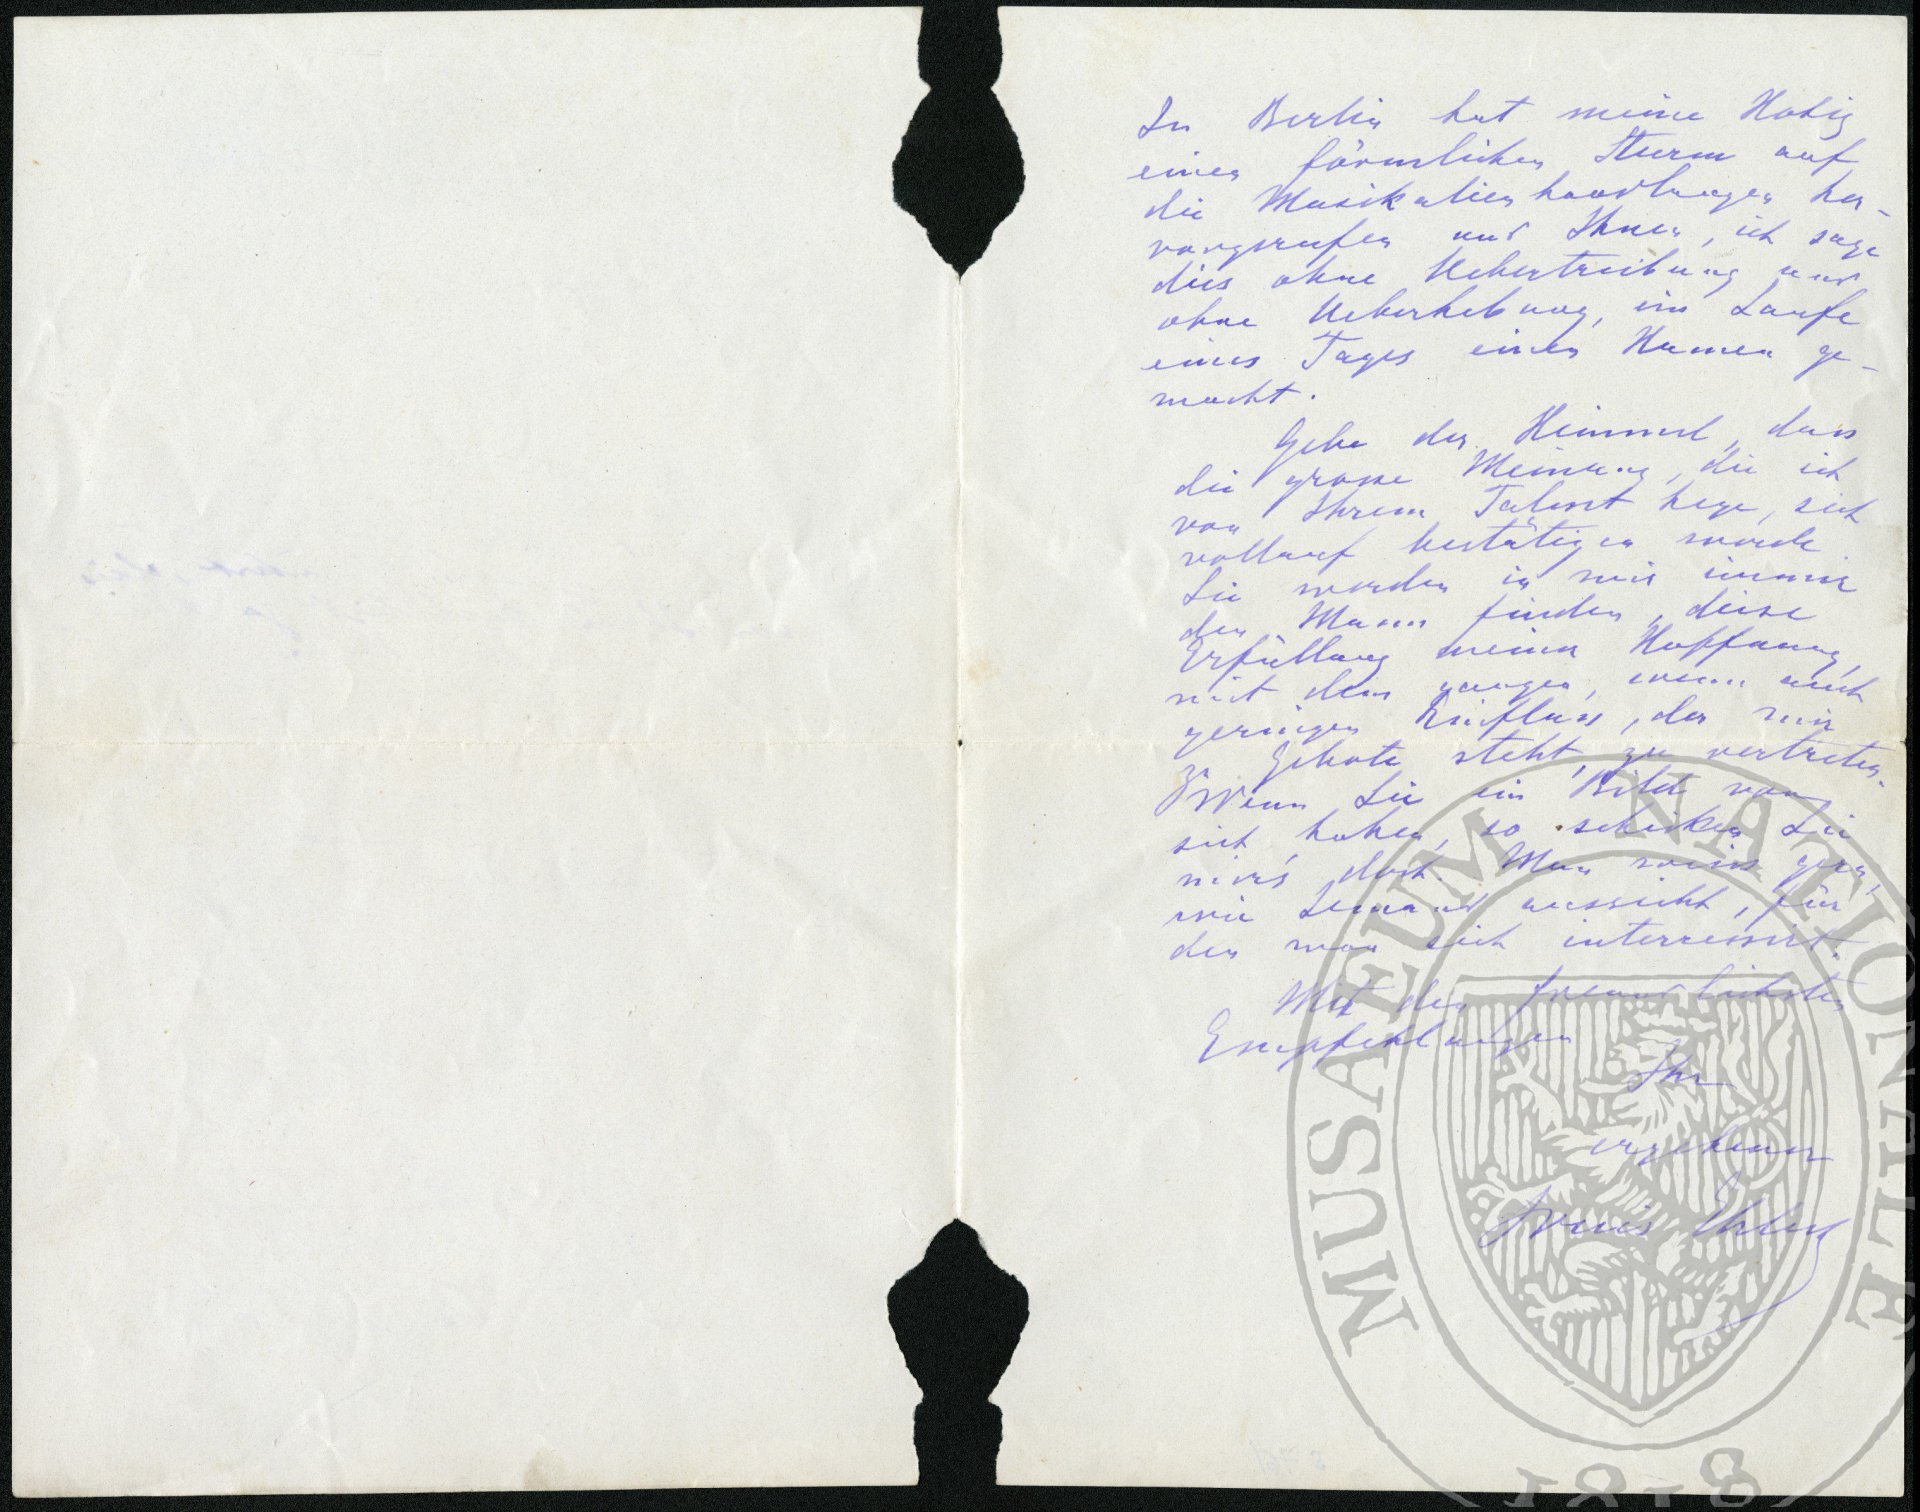 In Berlin hat meine Notiz
einen förmlichen Sturm auf
die Musikalienhandlungen her-
vorgerufen und Ihnen, ich sage
dies ohne Uebertreibung und
ohne Ueberhebung, im Laufe
eines Tages einen Namen ge-
macht.
Gebe der Himmel, dass
die grosse Meinung, die ich
von Ihrem Talent hege, sich
vollauf bestätigen werde.
Sie werden in mir immer
den Mann finden, diese
Erfüllung meiner Hoffnung,
mit dem ganzen, wenn auch
geringen Einfluss, der mir
zu Gebote steht, zu vertreten.
Wenn Sie ein Bild von
sich haben, so schicken Sie
mirs doch. Man weiss gern,
wie Jemand aussieht, für
den man sich interressirt.
Mit den freundlichsten
Empfehlungen
Ihr
ergebener
Louis Ehlert
MUSAEUM NATIONALE
1818